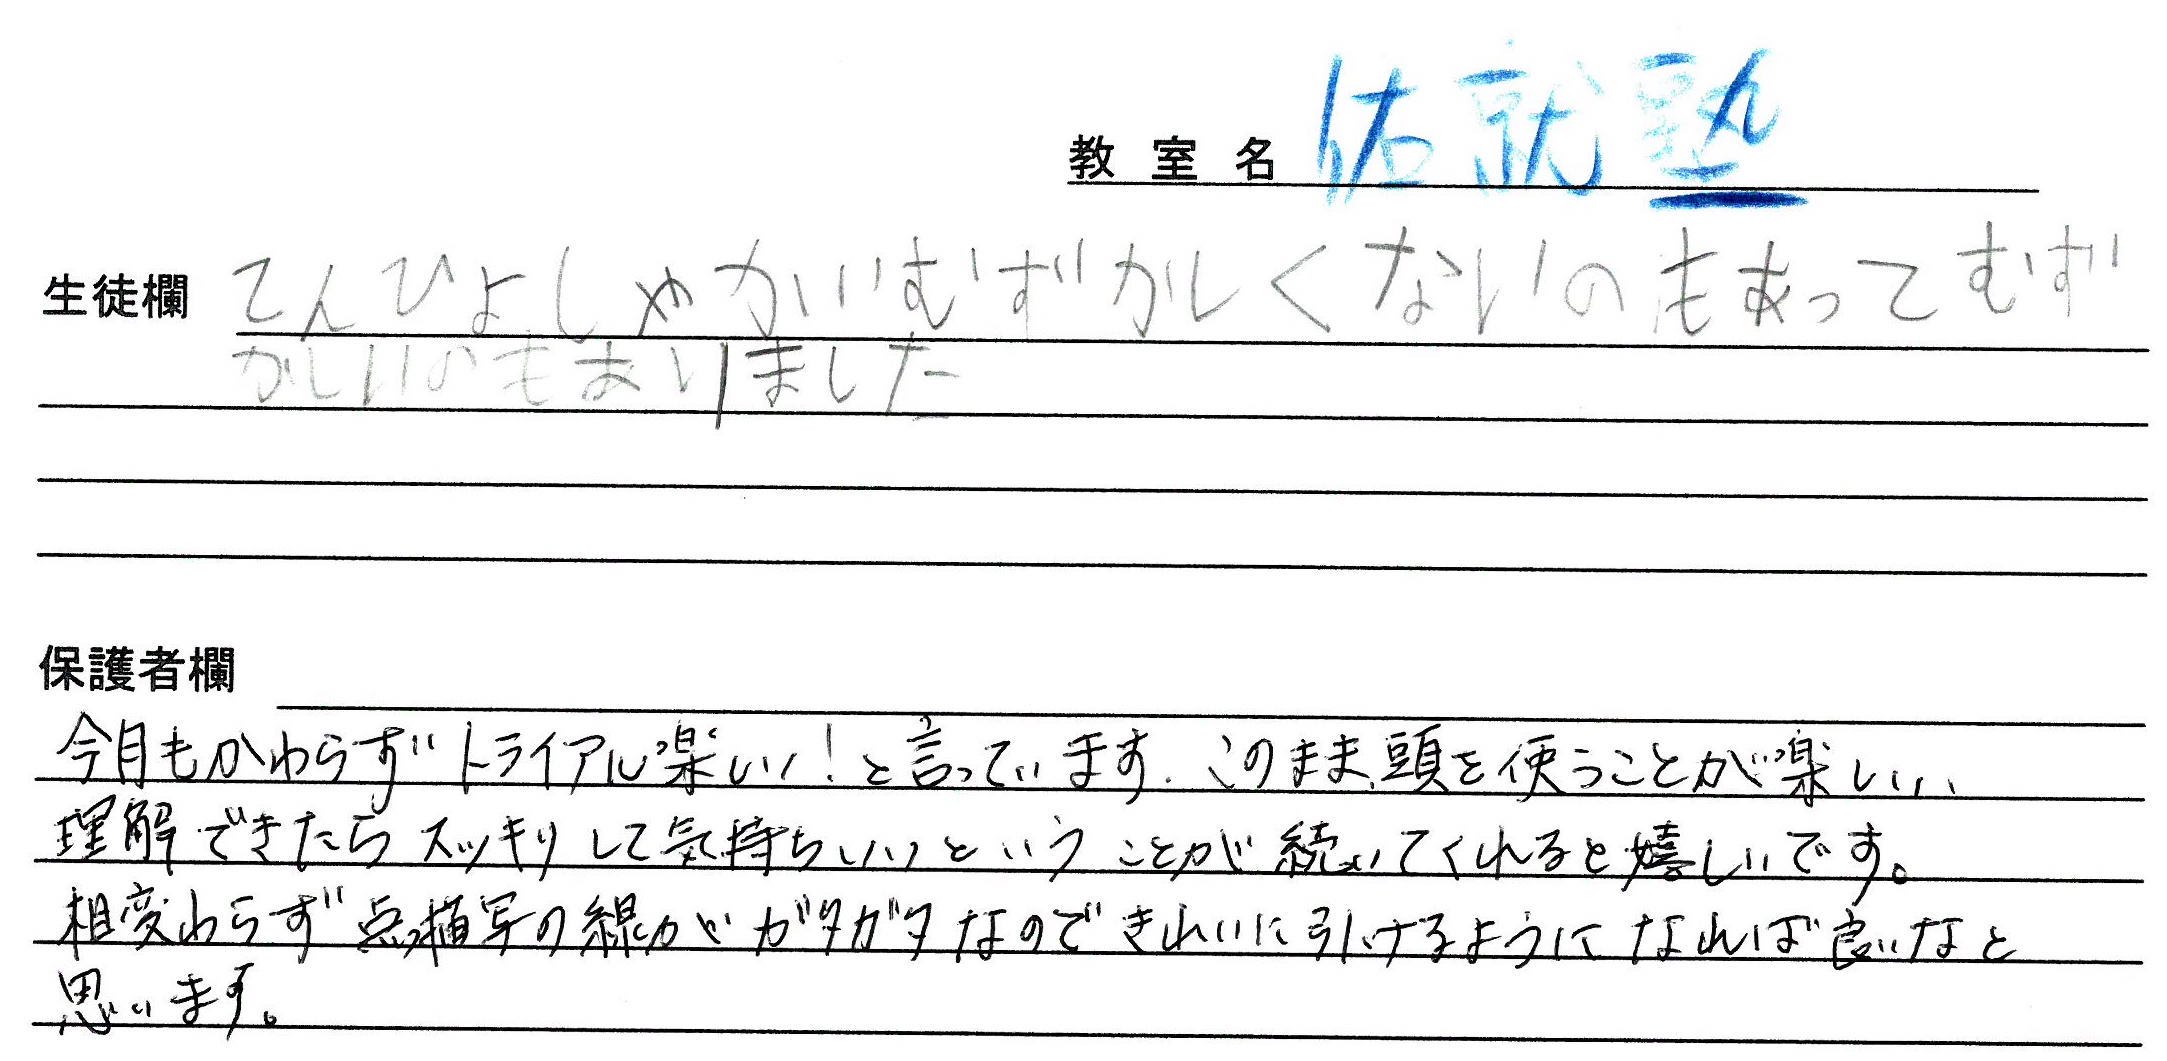 教室名 佑就塾
生徒欄 てんひよしゃかいむずかしくないのもあってむず
かしいのもありました
保護者欄
今月もかわらずトライアル楽しい！と言っています。このまま、頭を使うことが楽しい、
理解できたらスッキリして気持ちいいということが続いてくれると嬉しいです。
相変わらず点描写の線がガタガタなのできれいに引けるようになれば良いなと
思います。